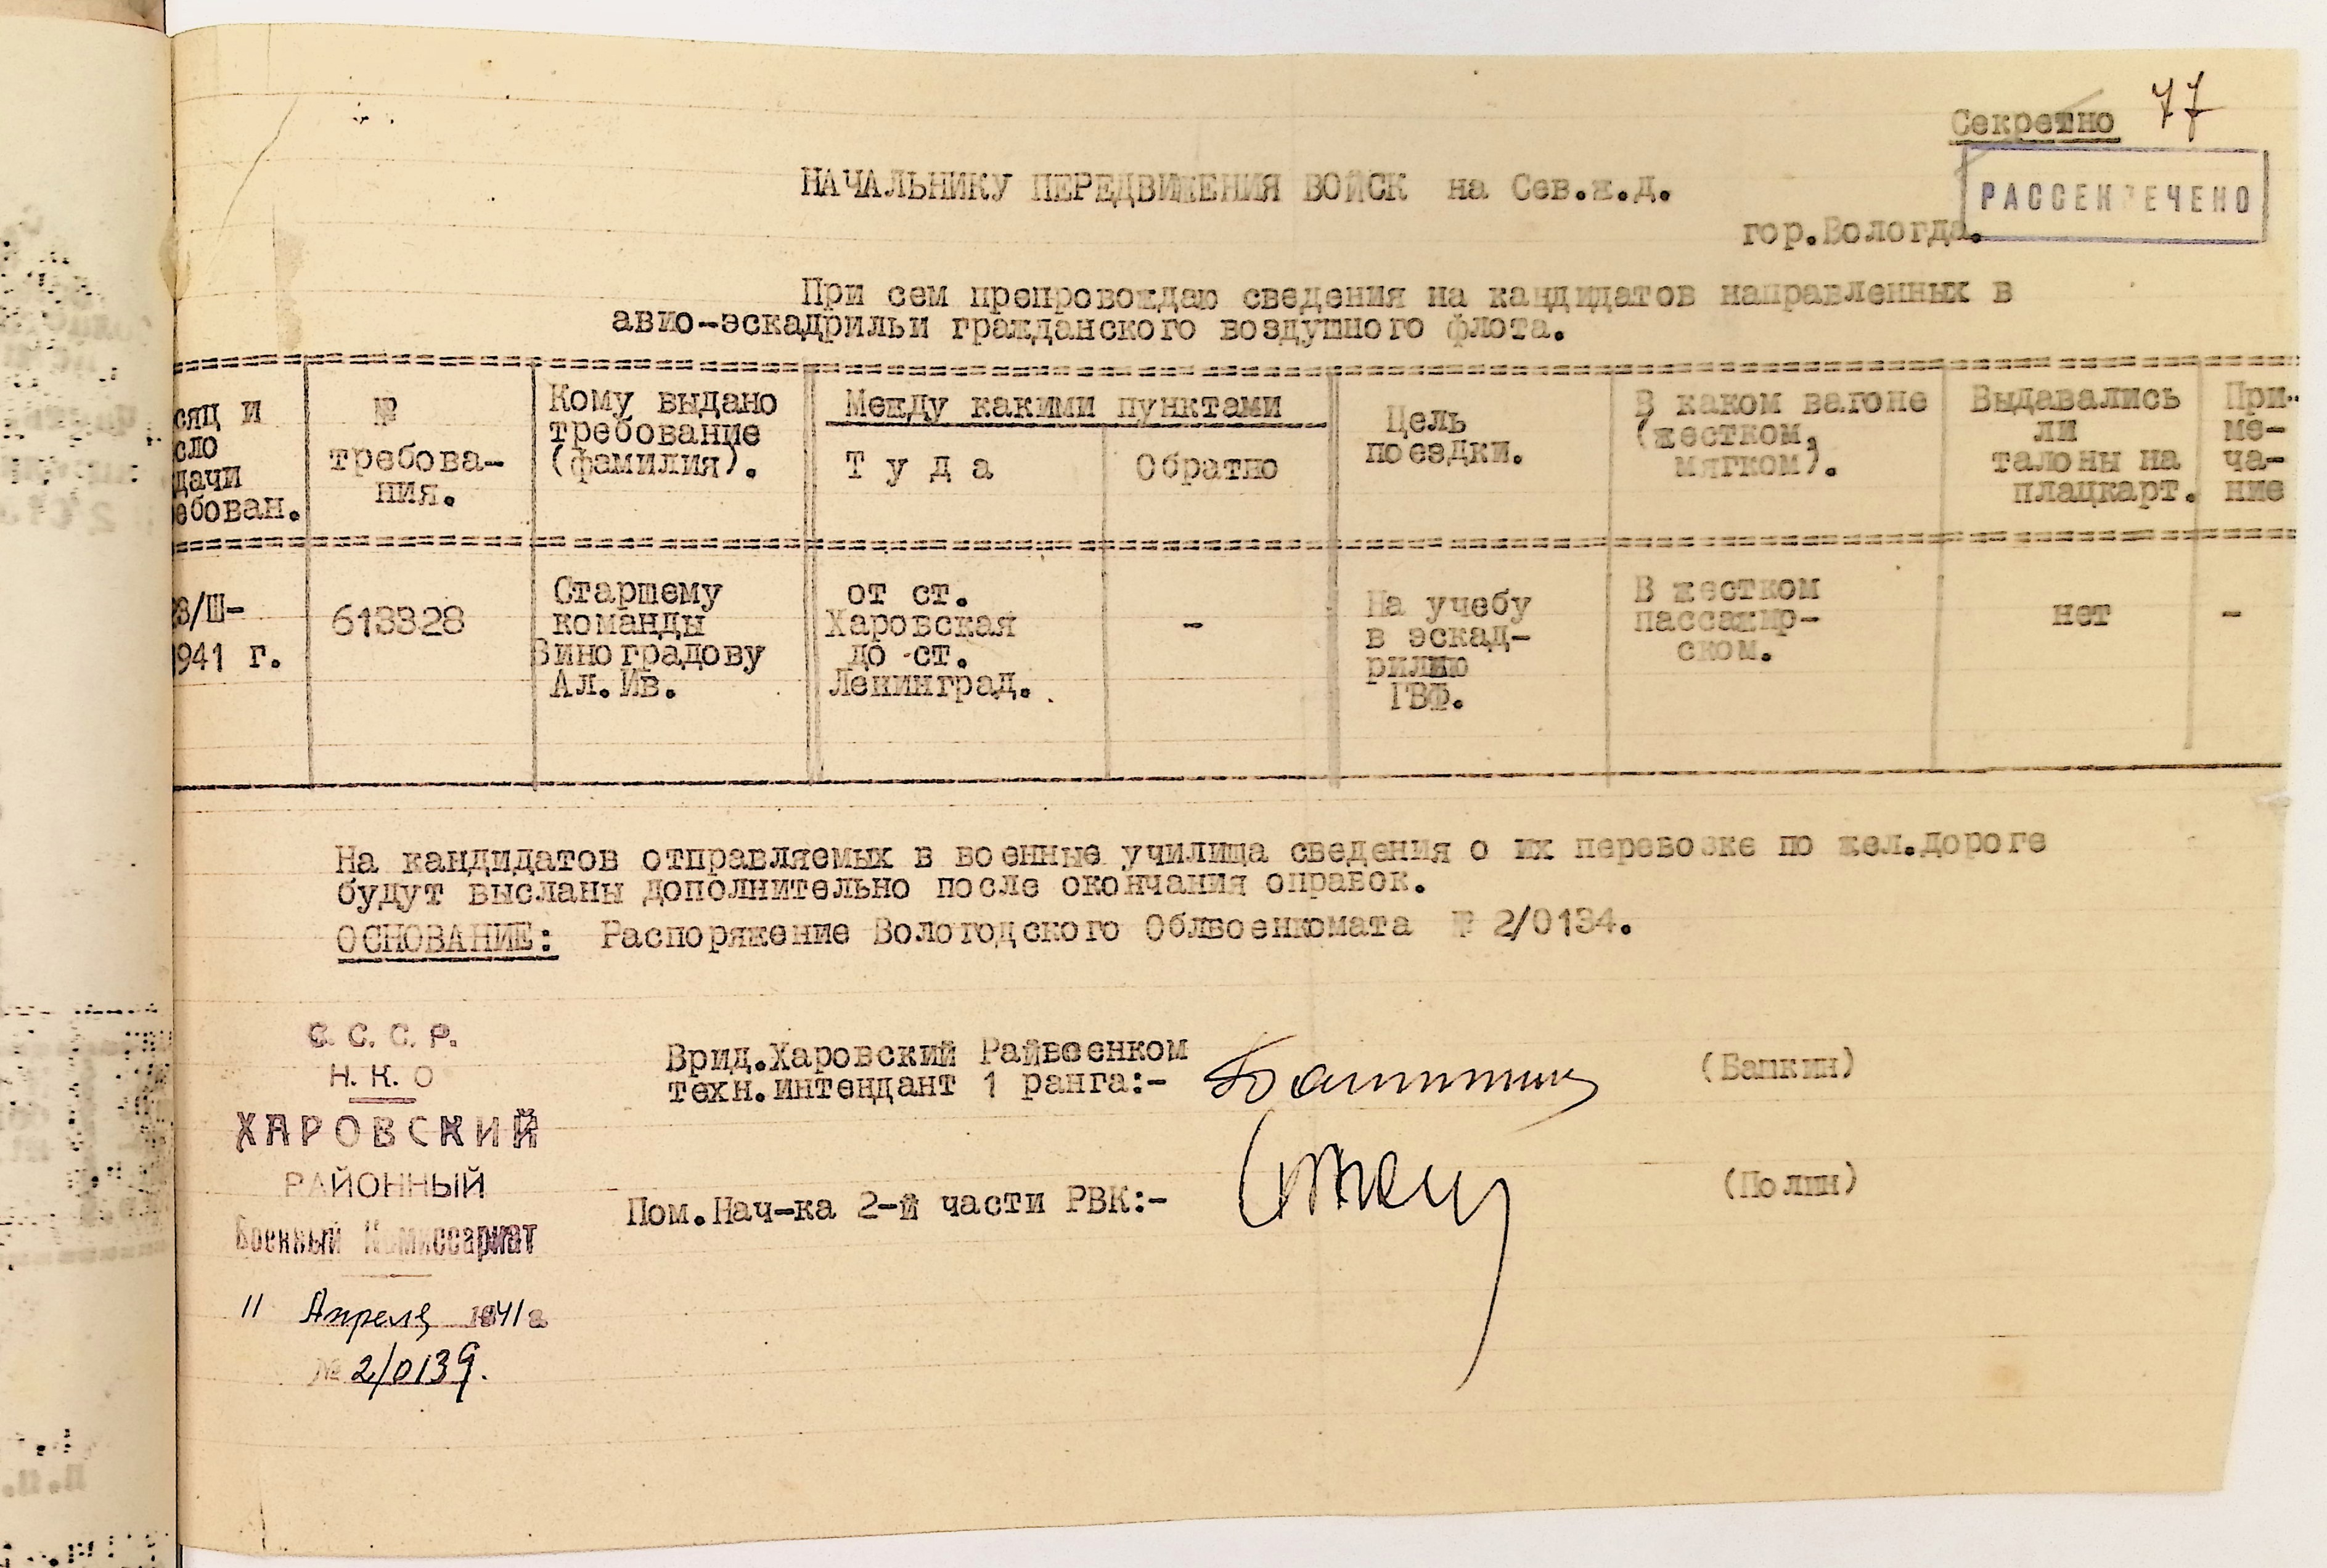 Секретно 77
РАССЕКРЕЧЕНО
НАЧАЛЬНИКУ ПЕРЕДВИЖЕНИЯ ВОЙСК на Сев.ж.д.
гор.Вологда.
При сем препровождаю сведения на кандидатов направленных в
авио-эскадрильи гражданского воздушного флота.
сяц и
сло
дачи
ебован.
№
требова-
ния.
Кому выдано
требование
(фамилия).
Между какими пунктами
Т у д а
Обратно
Цель
поездки.
В каком вагоне
(жестком,
мягком).
Выдавались
ли
талоны на
плацкарт.
При-
ме-
ча-
ние
8/Ш-
941 г.
613328
Старшему
команды
Виноградову
Ал.Ив.
от ст.
Харовская
до ст.
Ленинград.
-
На учебу
в эскад-
рилию
ГВФ.
В жестком
пассажир-
ском.
нет
-
На кандидатов отправляемых в военные училища сведения о их перевозке по жел.дороге
будут высланы дополнительно после окончания оправок.
ОСНОВАНИЕ: Распоряжение Вологодского Облвоенкомата № 2/0134.
С. С. С. Р.
Н. К. О
ХАРОВСКИЙ
РАЙОННЫЙ
Военный Комиссариат
" Апреля 1941 г
№ 2/0139.
Врид.Харовский Райвоенком
техн.интендант 1 ранга:-
(Башкин)
Пом.Нач-ка 2-й части РВК:-
(Полин)